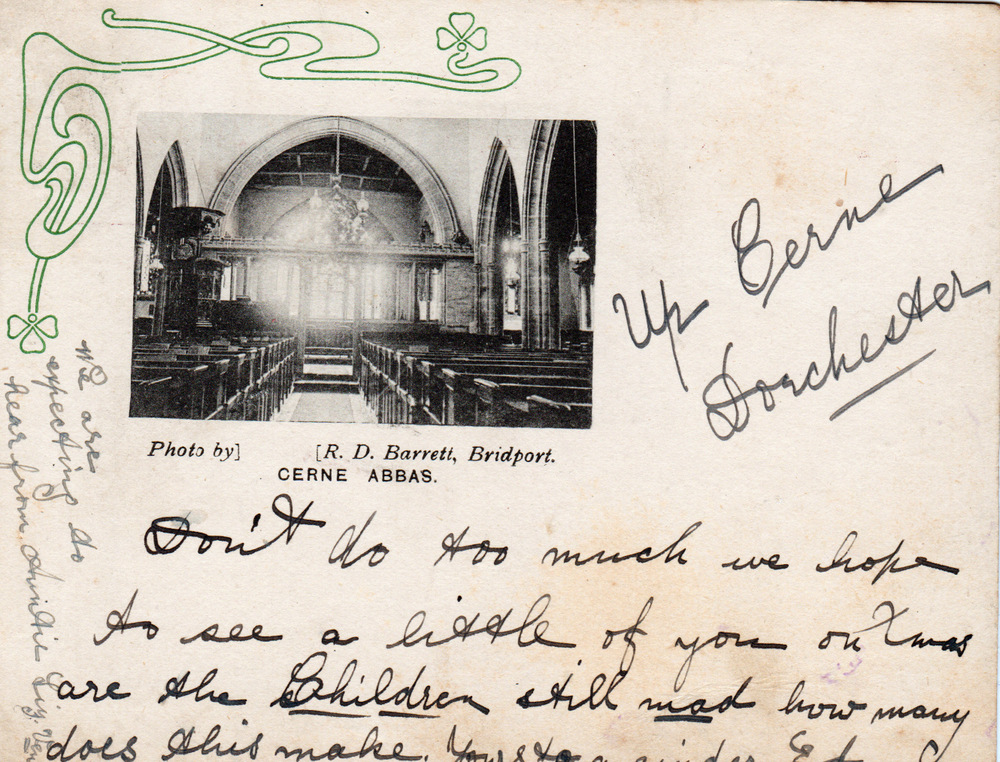 Up Cerne
Dorchester
Photo by] [R. D. Barrett, Bridport.
CERNE ABBAS.
Don't do too much we hope
to see a little of you on Xmas
are the Children still mad how many
does this make. Yours to a cinder
We are
expecting to
hear from Auntie Liz.